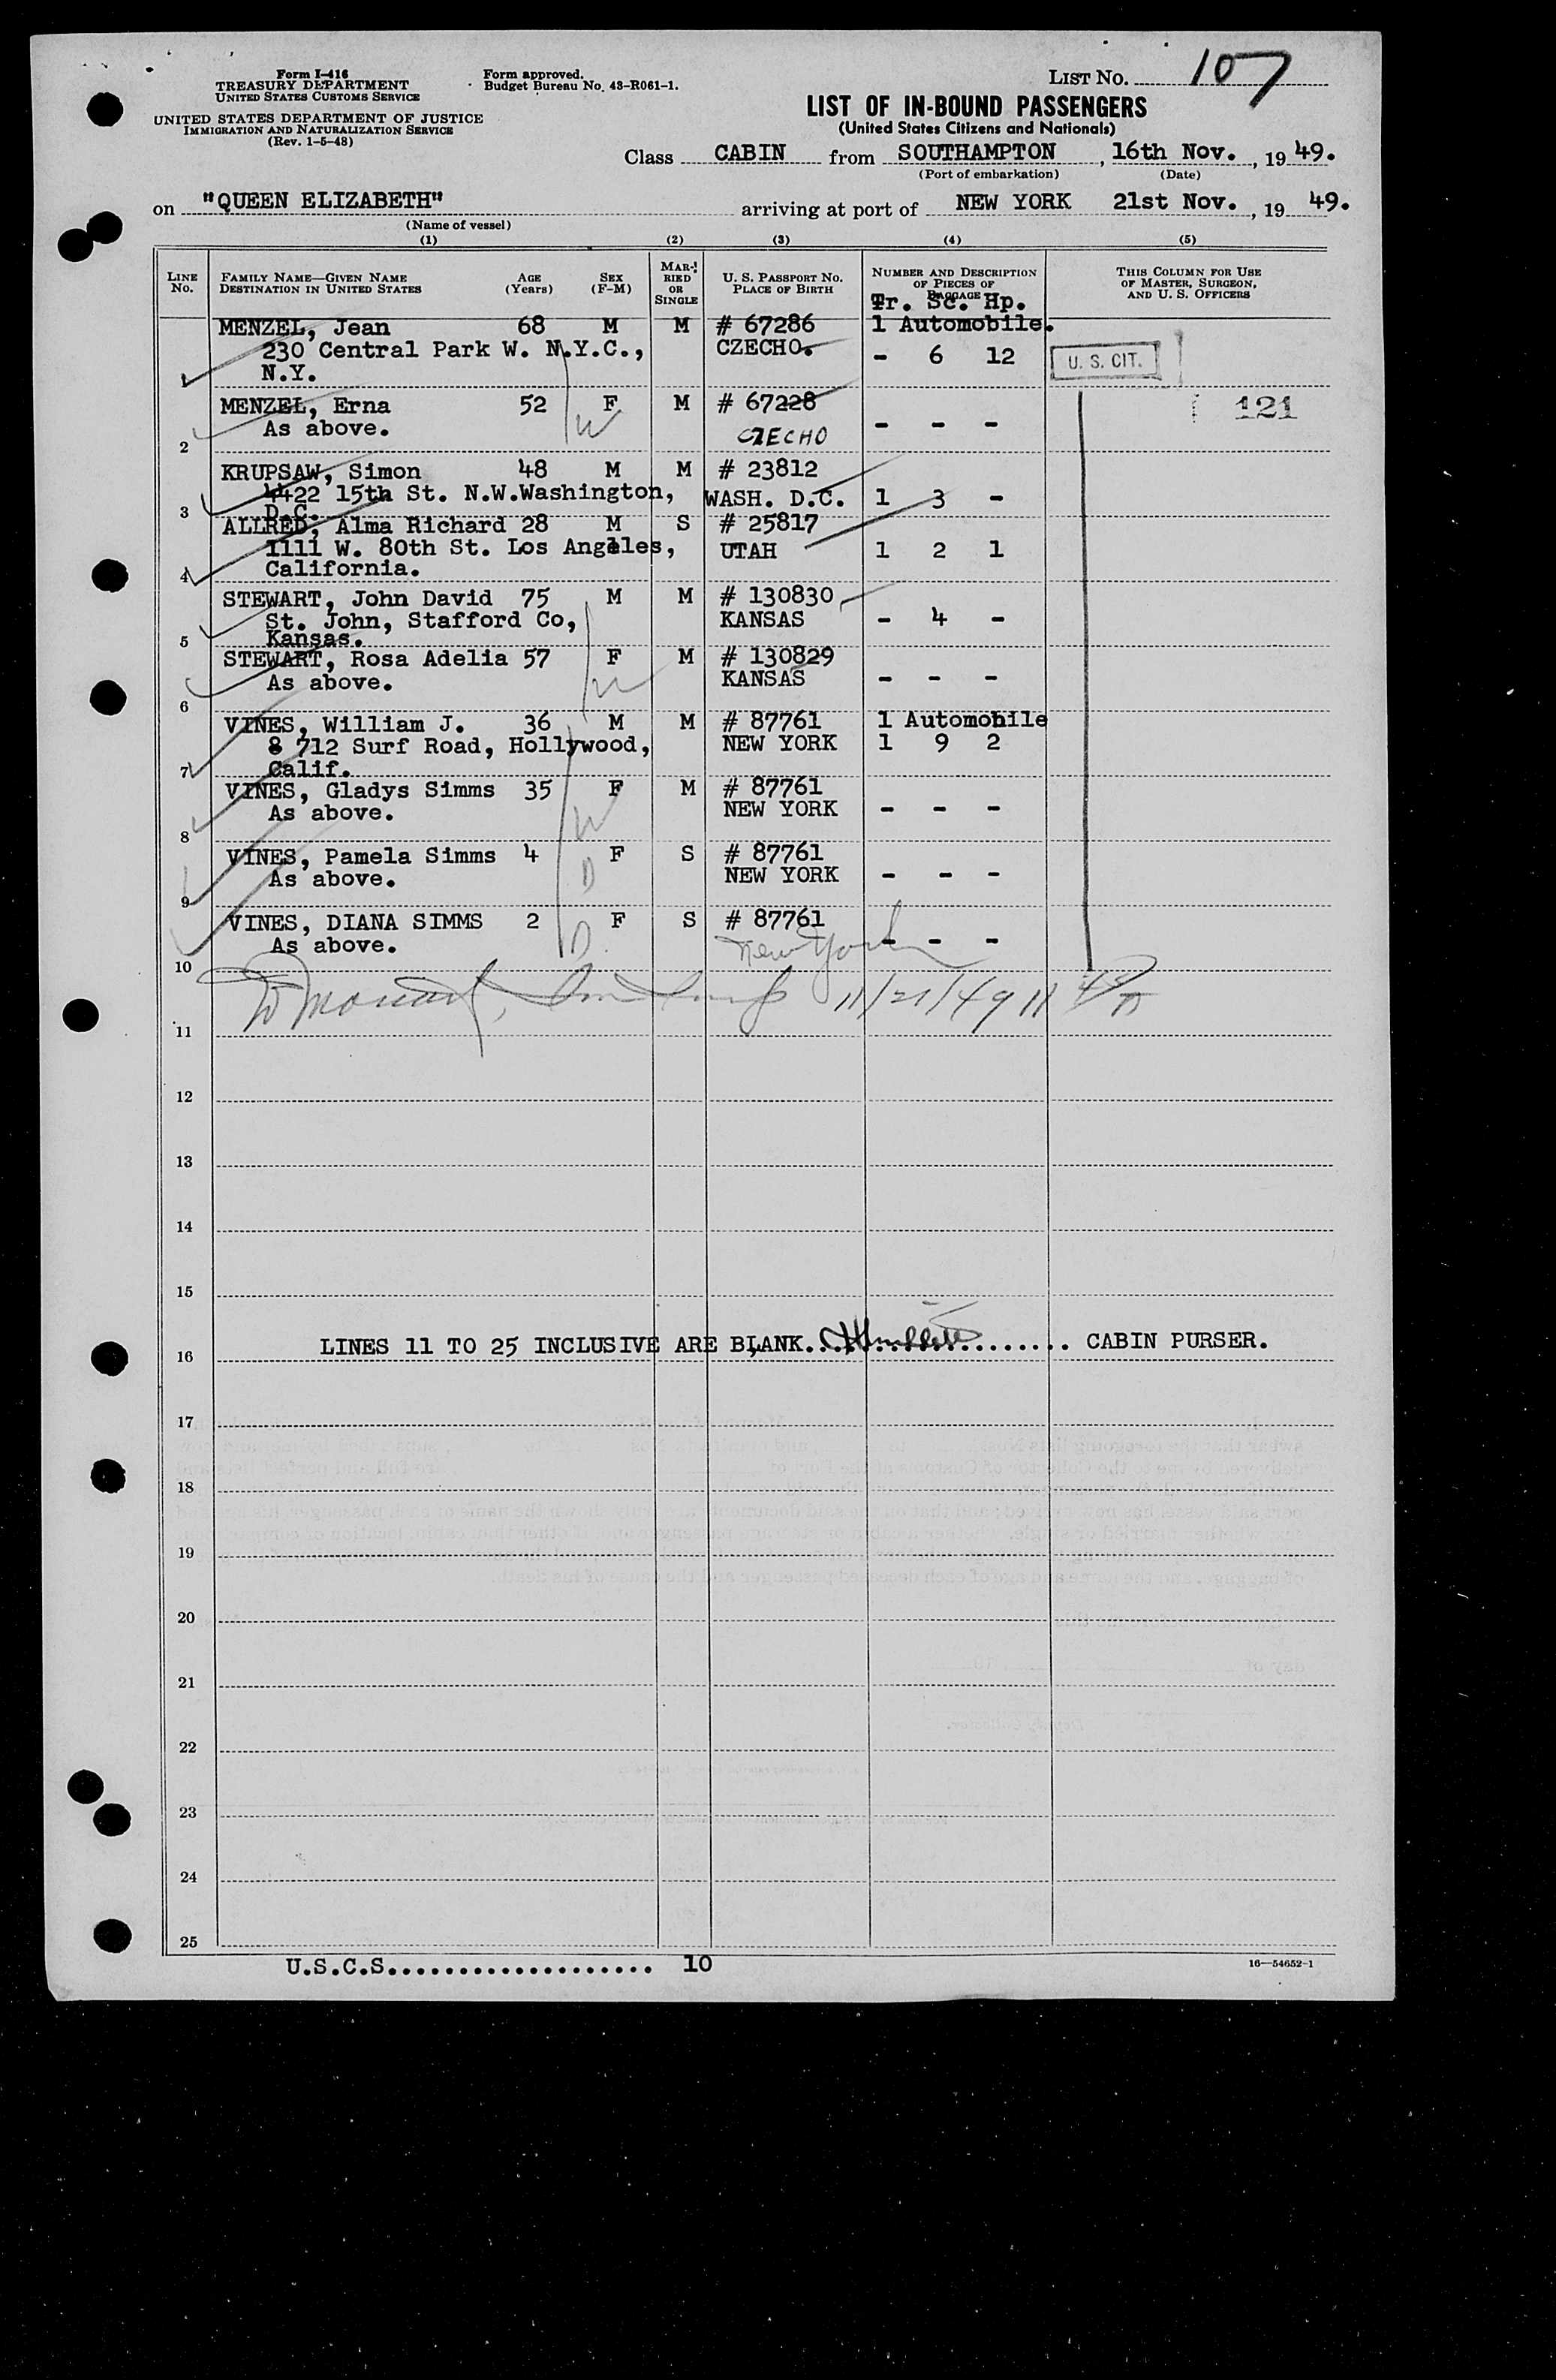 Form I-416
TREASURY DEPARTMENT
UNITED STATES CUSTOMS SERVICE
UNITED STATES DEPARTMENT OF JUSTICE
IMMIGRATION AND NATURALIZATION SERVICE
(Rev. 1-5-48)
Form approved.
Budget Bureau No. 43-R061-1.
LIST NO. 107
LIST OF IN-BOUND PASSENGERS
(United States Citizens and Nationals)
Class CABIN from SOUTHAMPTON, 16th Nov., 1949.
(Port of embarkation) (Date)
on "QUEEN ELIZABETH" arriving at port of NEW YORK 21st Nov., 1949.
(Name of vessel)
(1) (2) (3) (4) (5)
LINE NO. FAMILY NAME—GIVEN NAME DESTINATION IN UNITED STATES AGE (Years) SEX (F-M) MARRIED OR SINGLE U. S. PASSPORT NO. PLACE OF BIRTH NUMBER AND DESCRIPTION OF PIECES OF BAGGAGE THIS COLUMN FOR USE OF MASTER, SURGEON, AND U. S. OFFICERS
Tr. Sc. Hp.
MENZEL, Jean 68 M M # 67286 1 Automobile.
230 Central Park W. N.Y.C., CZECHO. - 6 12 U. S. CIT.
1 N.Y.
MENZEL, Erna 52 F M # 67228 121
As above. W CZECHO - - -
2
KRUPSAW, Simon 48 M M # 23812
4422 15th St. N.W.Washington, WASH. D.C. 1 3 -
3 D.C.
ALLRED, Alma Richard 28 M S # 25817
1111 W. 80th St. Los Angeles, UTAH 1 2 1
4 California.
STEWART, John David 75 M M # 130830
St. John, Stafford Co, KANSAS - 4 -
5 Kansas.
STEWART, Rosa Adelia 57 F M # 130829
As above. W KANSAS - - -
6
VINES, William J. 36 M M # 87761 1 Automobile
8 712 Surf Road, Hollywood, NEW YORK 1 9 2
7 Calif.
VINES, Gladys Simms 35 F M # 87761
As above. W NEW YORK - - -
8
VINES, Pamela Simms 4 F S # 87761
As above. D NEW YORK - - -
9
VINES, DIANA SIMMS 2 F S # 87761
As above. D. New York - - -
10
11/21/49
11
12
13
14
15
LINES 11 TO 25 INCLUSIVE ARE BLANK. CABIN PURSER.
16
17
18
19
20
21
22
23
24
25
U.S.C.S.................... 10
16—54652-1